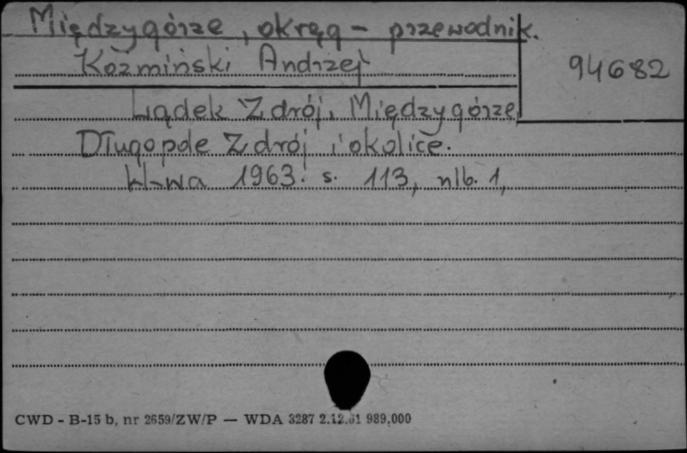 Międzygórze, okręg - przewodnik.
Koźmiński Andrzej
94682
Lądek Zdrój, Międzygórze
Długopole Zdrój i okolice.
W-wa 1963. s. 113, nlb. 1,
CWD - B-15 b, nr 2659/ZW/P — WDA 3287 2.12.61 989.000